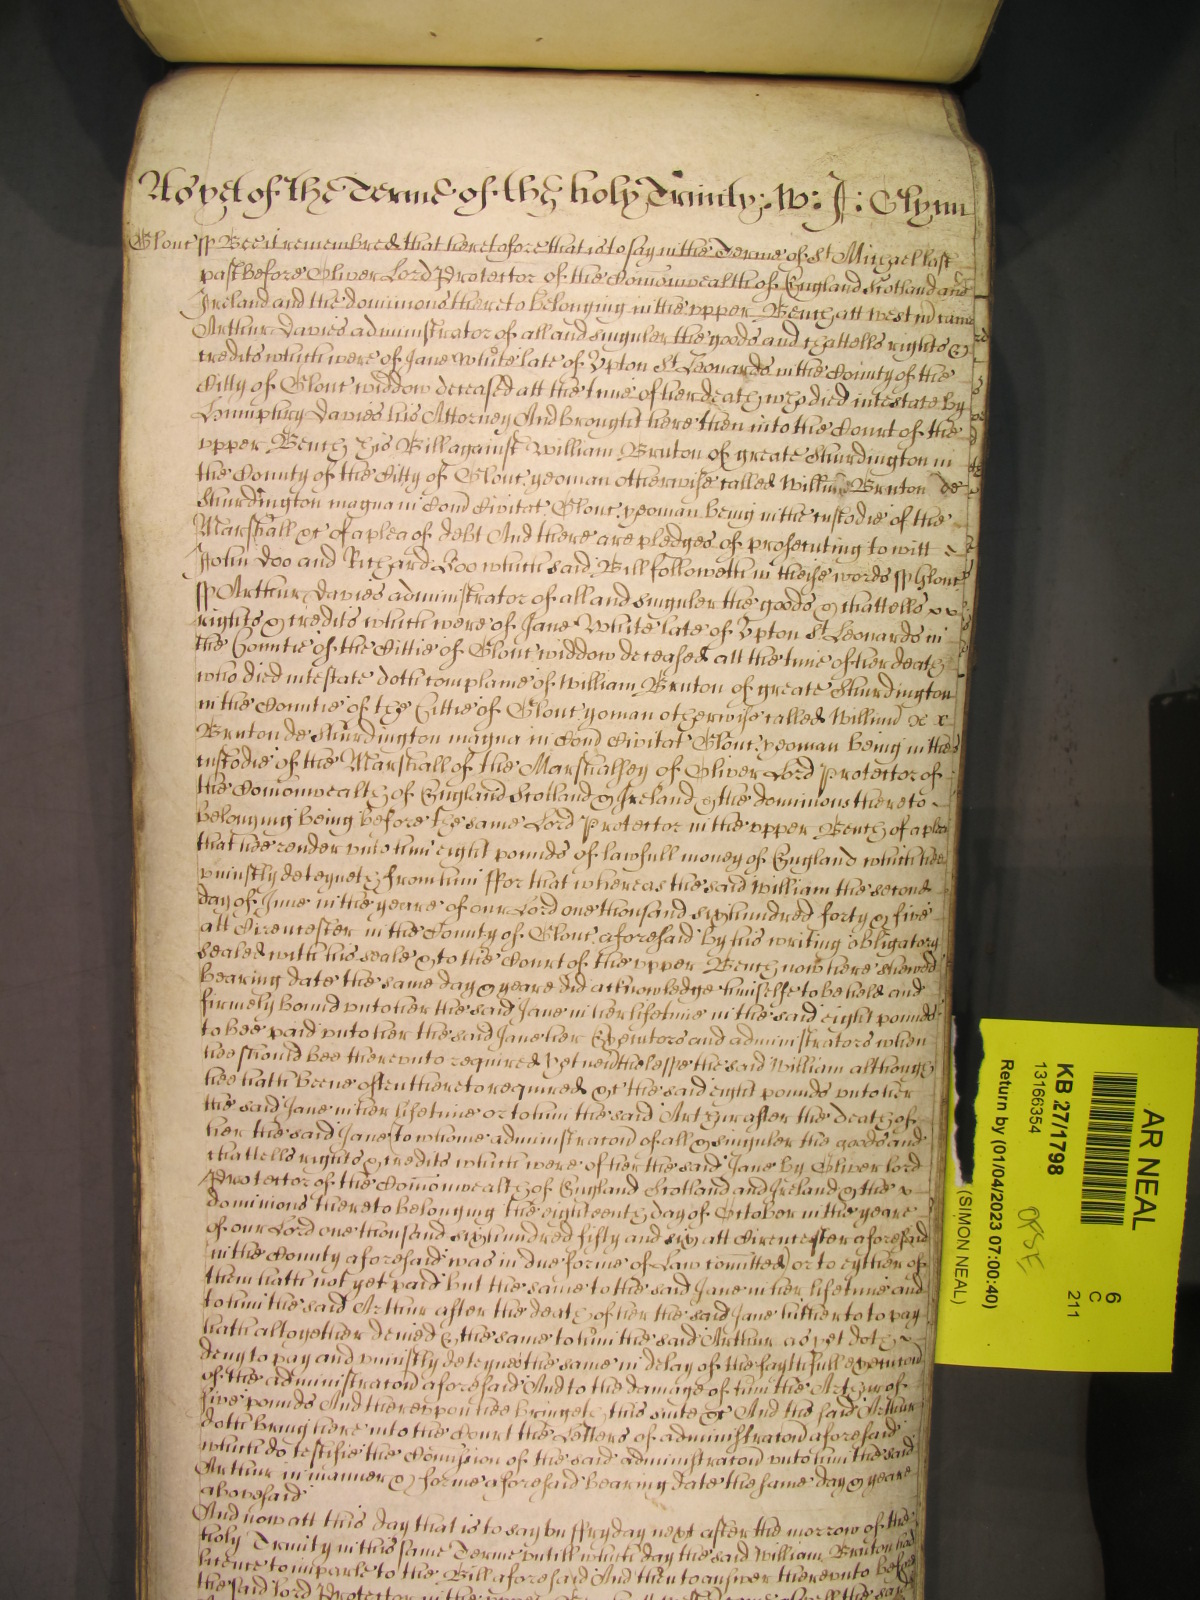 As yet of the Terme of the holy Trinity: W: J: Glynn
Glouc ss Bee it remembred that heretofore that is to say in the Terme of St Michael last
past before Oliver Lord Protector of the Comonwealth of England Scotland and
Ireland and the dominions thereto belonging in the upper Bench att westm came
Arthur Davies administrator of all and singuler the goods and chattells rights &
credits which were of Jane White late of Upton St Leonards in the County of the
Citty of Glouc widdow deceased att the time of her death who died intestate by
Humphry Davies his Attorney And brought here then into the Court of the
upper Bench his Bill against William Bruton of greate Shurdington in
the County of the Citty of Glouc yeoman otherwise called Willim Bruton de
Shurdington magna in Com Civitat Glouc yeoman being in the custodie of the
Marshall &c of a plea of debt And there are pledges of prosecuting to witt
John Doo and Richard Roo which said Bill followeth in theise words ss Glouc
ss Arthur Davies administrator of all and singuler the goods & chattells x x
rights & credits which were of Jane White late of Upton St Leonards in
the Countie of the Cittie of Glouc widdow deceased att the time of her death
who died intestate doth complaine of William Bruton of greate Shurdington
in the Countie of the Cittie of Glouc yoman otherwise called Willim x x
Bruton de Shurdington magna in Com Civitat Glouc yeoman being in the
custodie of the Marshall of the Marshalsey of Oliver Lord Protector of
the Comonwealth of England Scotland & Ireland & the dominions thereto
belonging being before the same Lord Protector in the upper Bench of a plea
that hee render unto him eight pounds of lawfull money of England which hee
uniustly deteyneth from him ffor that whereas the said William the second
day of June in the yeare of our Lord one thousand six hundred forty & five
att Cirencester in the County of Glouc aforesaid by his writing obligatory
sealed with his seale & to the Court of the upper Bench now here shewed
bearing date the same day & yeare did acknowledge himselfe to be held and
firmely bound unto her the said Jane in her lifetime in the said eight pounds
to bee paid unto her the said Jane her Executors and administrators when
hee should bee thereunto required Yet neverthelesse the said William although
hee hath beene often thereto required &c the said eight pounds unto her
the said Jane in her lifetime or to him the said Arthur after the death of
her the said Jane To whome administracon of all & singuler the goods and
chattells rights & credits which were of her the said Jane by Oliver lord
Protector of the Comonwealth of England Scotland and Ireland & the x
dominions thereto belonging the eighteenth day of October in the yeare
of our Lord one thousand six hundred fifty and six att Cirencester aforesaid
in the County aforesaid was in due forme of Law comitted or to eyther of
them hath not yet paid but the same to the said Jane in her lifetime and
to him the said Arthur after the death of her the said Jane hitherto to pay
hath altogether denied & the same to him the said Arthur as yet doth
deny to pay and uniustly deteyneth the same in delay of the faythfull execucon
of the administracon aforesaid And to the damage of him the Arthur of
five pounds And thereupon hee bringeth this suite &c And the said Arthur
doth bring here into the Court the Letters of administracon aforesaid
which do testifie the Comission of the said administracon unto him the said
Arthur in manner & forme aforesaid bearing date the same day & yeare
abovesaid
And now att this day that is to say on ffryday next after the morrow of the
holy Trinity in this same Terme untill which day the said William Bruton had
licence to imparle to the Bill aforesaid And then to answer thereunto before
the said lord Protector in the upper Bench
AR NEAL
KB 27/1798
13166354
Return by (01/04/2023 07:00:40)
(SIMON NEAL)
6
C
211